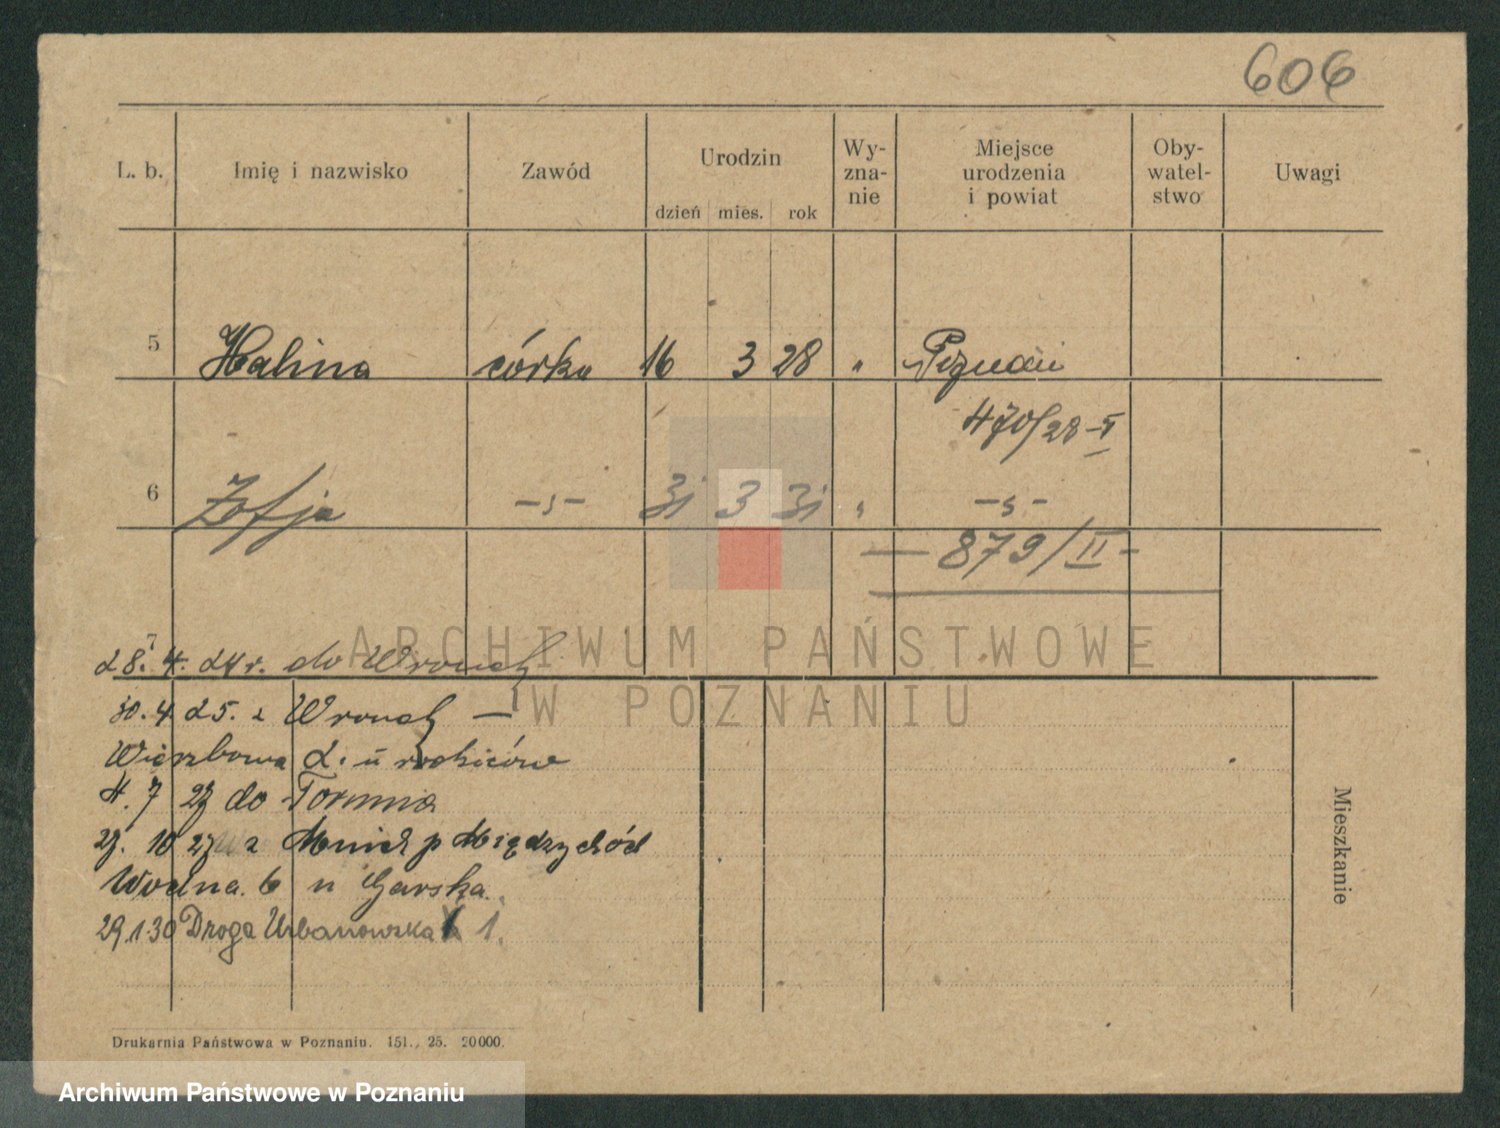 606
L. b. Imię i nazwisko Zawód Urodzin dzień mies. rok Wy-zna-nie Miejsce urodzenia i powiat Oby-watel-stwo Uwagi
5 Halina córka 16 3 28 " Poznań
470/28-I
6 Zofja -"- 31 3 31 " -"-
879/II-
7
28. 4. 24 r. do Wronek
30. 4. 25. z Wronek —
Wierzbowa 2. u rodziców
4. 7 27 do Torunia
27. 10 27 z p Międzychód
Wodna 6 u Garska.
29.1.30 Droga Urbanowska 1.
Mieszkanie
Drukarnia Państwowa w Poznaniu. 151., 25. 20000.
ARCHIWUM PAŃSTWOWE
W POZNANIU
Archiwum Państwowe w Poznaniu